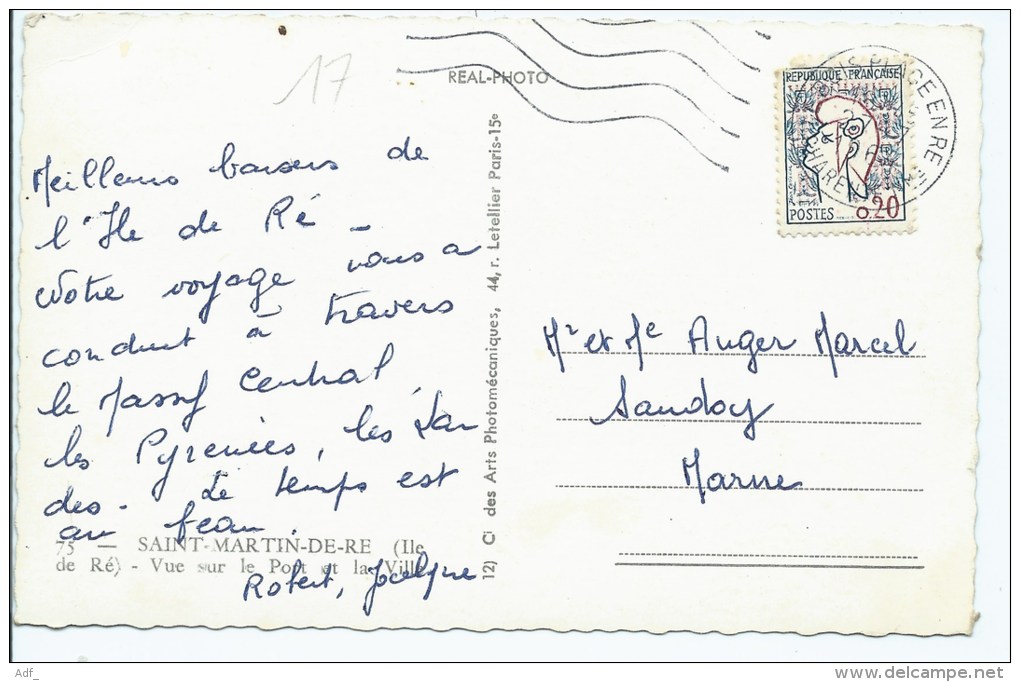 17
REAL-PHOTO
REPUBLIQUE FRANÇAISE
POSTES 0.20
PLAGE EN RE
Meilleurs baisers de
l'Ile de Ré -
Notre voyage nous a
conduit à travers
le Massif Central,
les Pyrenées, les Lan
des. Le temps est
au beau.
Robert, Jocelyne
75 — SAINT-MARTIN-DE-RE (Ile
de Ré) - Vue sur le Port et la Ville
12) Cie des Arts Photomécaniques, 44, r. Letellier Paris-15e
Mr et Me Auger Marcel
Saudoy
Marne
Adf_
www.delcampe.net